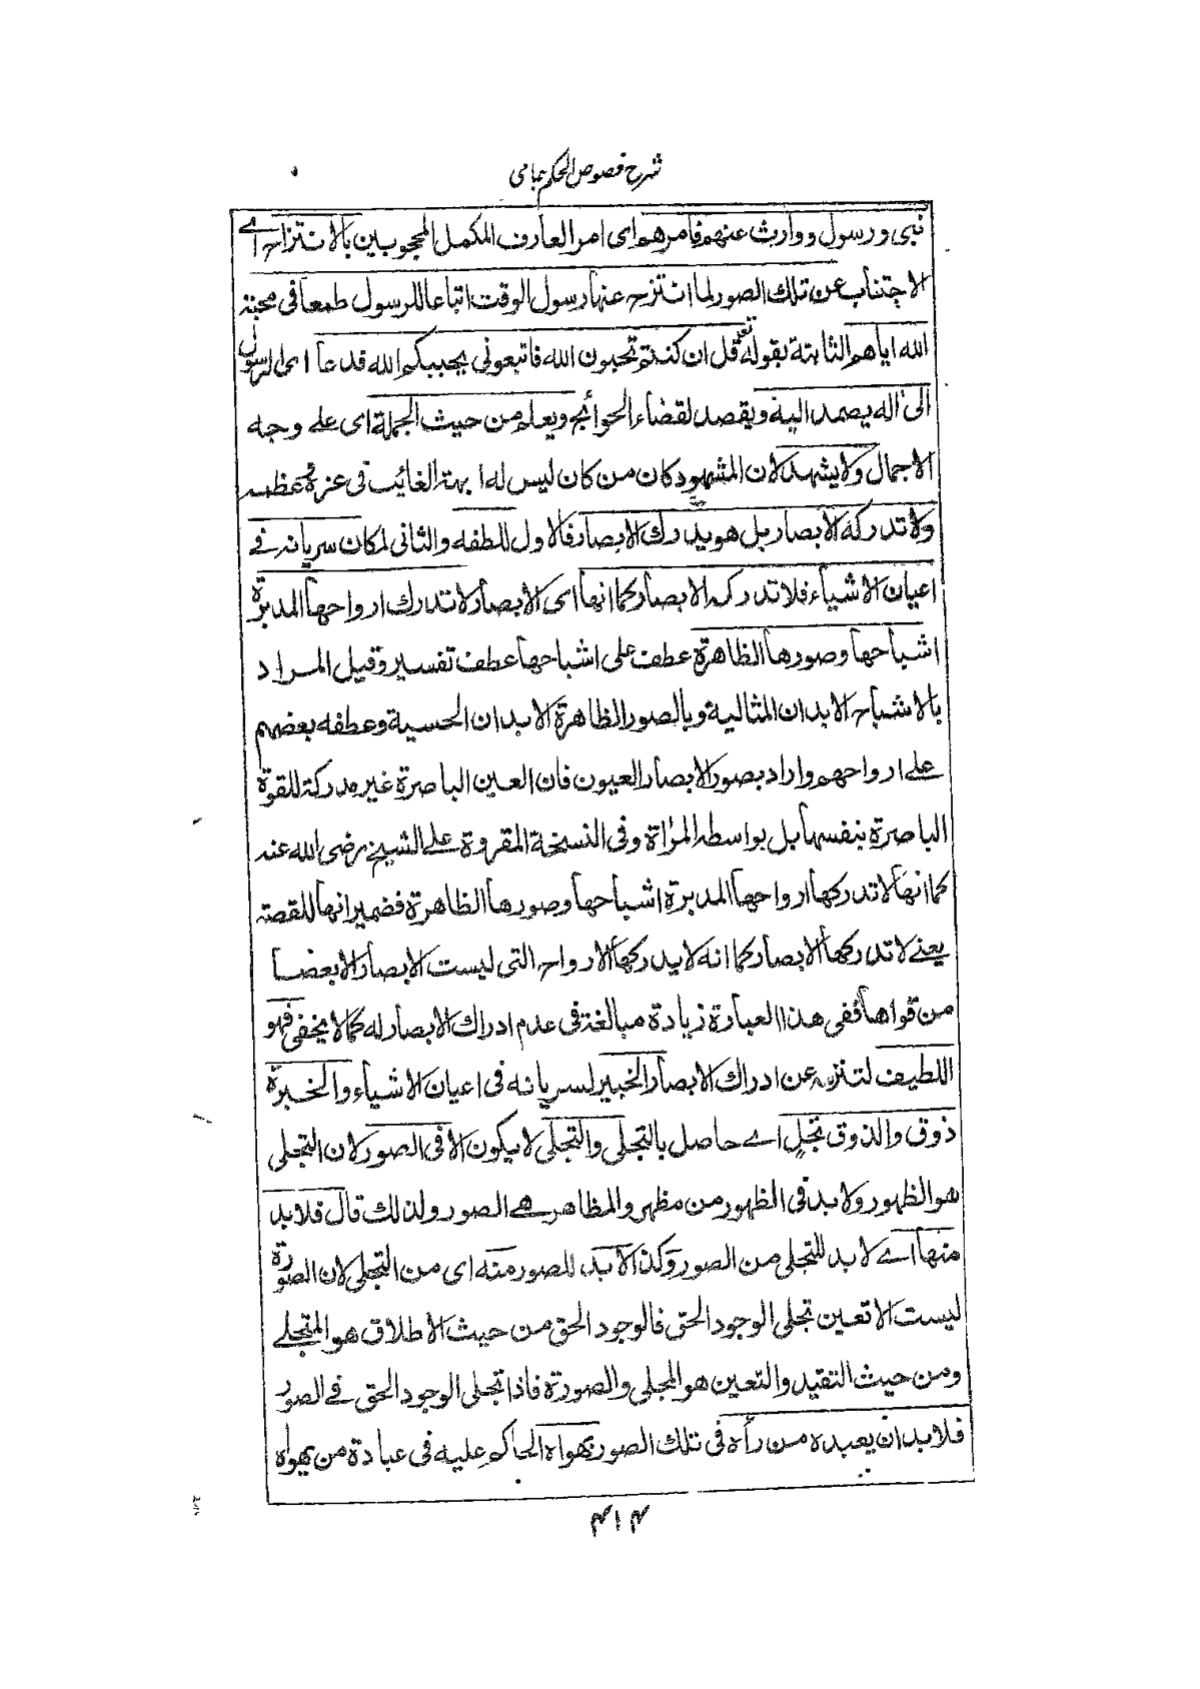 شرح فصوص الحكم جامى
نبى ورسول ووارث عنهم فامرهم اى امر العارف المكمل المحجوبين بالانتزاح اے
الاجتناب عن تلك الصور لما انتزح عنها رسول الوقت اتباعا للرسول طمعا فى محبة
الله اياهم الثابتة بقوله تعـ قل ان كنتم تحبون الله فاتبعونى يحببكم الله فدعا اى الرسول
الى اله يصمد اليه ويقصد لقضاء الحوائج ويعلم من حيث الجملة اى علے وجه
الاجمال ولا يشهد لان المشهود كان من كان ليس له ابهة الغائب فى عزة وعظمة
ولا تدركه الابصار بل هو يدرك الابصار فالاول للطفه والثانى لمكان سريانه فے
اعيان الاشياء فلا تدركه الابصار كما انها اى الابصار لا تدرك ارواحها المدبرة
اشباحها وصورها الظاهرة عطف على اشباحها عطف تفسير وقيل المراد
بالاشباح الابدان المثالية وبالصور الظاهرة الابدان الحسية وعطفه بعضهم
علے ارواحهم واراد بصور الابصار العيون فان العين الباصرة غير مدركة للقوة
الباصرة بنفسها بل بواسطه المرأة وفى النسخة المقروة علے الشيخ رضى الله عنه
كما انها لا تدركها ارواحها المدبرة اشباحها وصورها الظاهرة فضمير انها للقصة
يعنے لا تدركها الابصار كما انه لا يدركها الارواح التى ليست الابصار الا بعضا
من قواها ففى هذا العبارة زيادة مبالغة فى عدم ادراك الابصار له كما لا يخفى فهو
اللطيف لتنزهه عن ادراك الابصار الخبير لسريانه فى اعيان الاشياء والخبرة
ذوق والذوق تجلٍ اے حاصل بالتجلى والتجلى لا يكون الا فى الصور لان التجلى
هو الظهور ولا بد فى الظهور من مظهر والمظاهر هے الصور ولذلك قال فلا بد
منها اے لا بد للتجلى من الصور وكذا لا بد للصور منه اى من التجلى لان الصورة
ليست الا تعين تجلى الوجود الحق فالوجود الحق من حيث الاطلاق هو المتجلے
ومن حيث التقيد والتعين هو المجلى والصورة فاذا تجلى الوجود الحق فے الصور
فلا بد ان يعبده من رأه فى تلك الصور بهواه الحاكم عليه فى عبادة من يهواه
۴۱۴